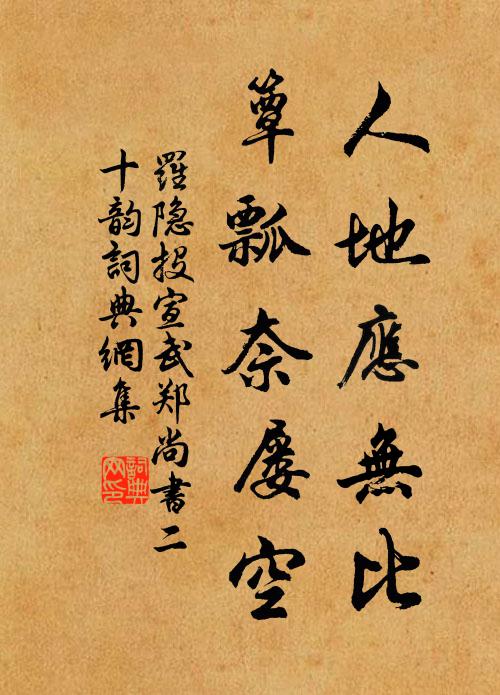 人地應無比
簞瓢奈屡空
羅隐投宣武郑尚書二
十韵詞典網集
詞典